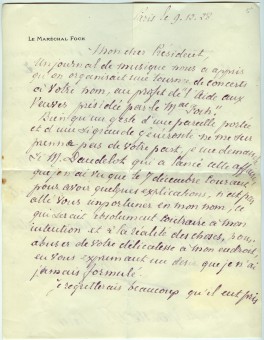 Paris le 9.12.28
LE MARÉCHAL FOCH
Mon cher Président,
Un journal de musique nous a appris
qu'on organisait une tournée de concerts
à votre nom, au profit de l'Aide aux
Veuves présidée par la Mlle Foch.
Bien qu'un geste d'une pareille portée
et d'une si grande générosité ne me sur
prenne pas de votre part, je me demande
si M. Daudelot qui a lancé cette affaire
que j'ai vu que le 7 décembre
pour avoir quelques explications, n'est pas
allé vous importuner en mon nom, ce
qui serait absolument contraire à mon
intention et à la réalité des choses, pour
abuser de votre délicatesse à mon endroit,
en vous exprimant un désir que je n'ai
jamais formulé.
Je regretterais beaucoup qu'il eut pris